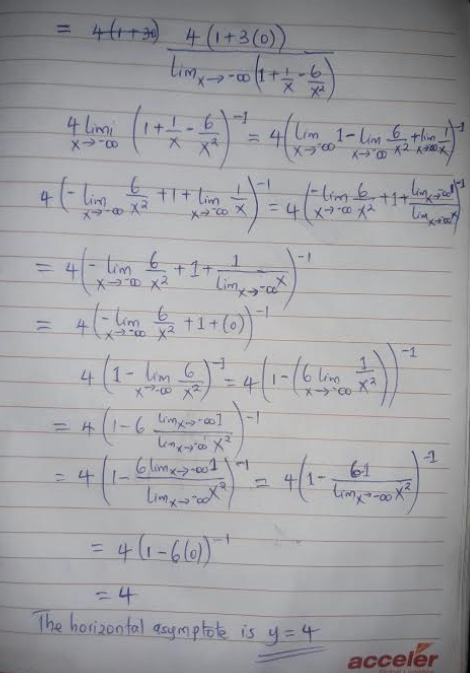 = 4(1+30) 4(1+3(0)) / lim x→-∞ (1 + 1/x - 6/x²)
4 limi x→-∞ (1 + 1/x - 6/x²)⁻¹ = 4(lim x→-∞ 1 - lim x→-∞ 6/x² + lim x→-∞ 1/x)⁻¹
4(-lim x→-∞ 6/x² + 1 + lim x→-∞ 1/x)⁻¹ = 4(-lim x→-∞ 6/x² + 1 + lim x→-∞ 1 / lim x→-∞ x)⁻¹
= 4(-lim x→-∞ 6/x² + 1 + 1 / lim x→-∞ x)⁻¹
= 4(-lim x→-∞ 6/x² + 1 + (0))⁻¹
4(1 - lim x→-∞ 6/x²)⁻¹ = 4(1 - (6 lim x→-∞ 1/x²))⁻¹
= 4(1 - 6 lim x→-∞ 1 / lim x→-∞ x²)⁻¹
= 4(1 - 6 lim x→-∞ 1 / lim x→-∞ x²)⁻¹ = 4(1 - 6·1 / lim x→-∞ x²)⁻¹
= 4(1 - 6(0))⁻¹
= 4
The horizontal asymptote is y = 4
acceler